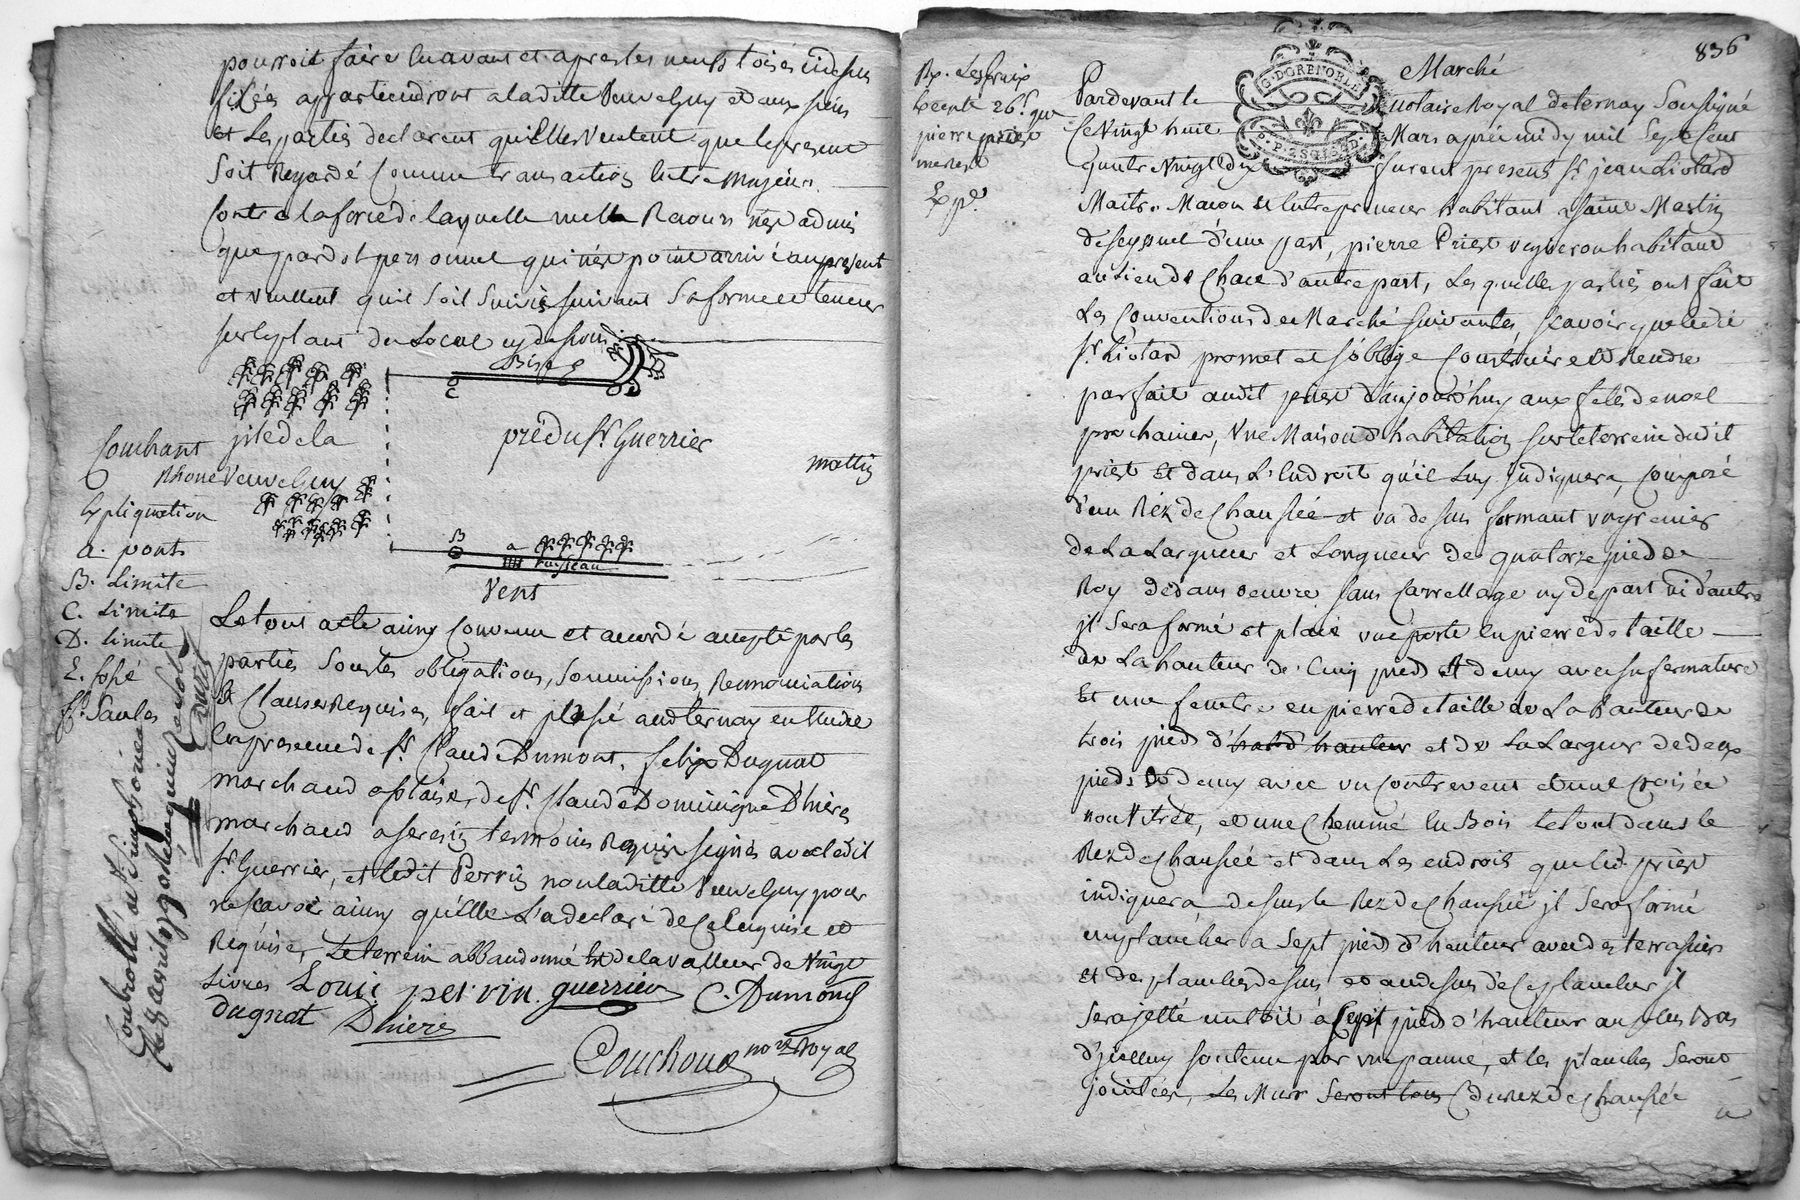 pourroit faire en avant et apres les neuf toises cidessus
fixées appartiendront a laditte veuve Guy et aux siens
et les parties declarent qu'elles veulent que le present
soit regardé comme transaction entre majeurs
contre la force de laquelle nulle Raison n'est admis
que par dol personnel qui n'est point arrivé au present
et veullent quil soit suivis suivant sa forme et teneur
sur le plans du Local cy dessous
Bise
C D
Couchant
isle de la
Rhone veuve Guy
pré du Sr. Guerrier
mattin
Explication
a. ponts
B. Limite
C. Limite
D. limite
E. fossé
ff. Saules
B a
ruisseau
Vent
Le tout a esté ainsy convenu et accordé accepté par les
parties sous les obligations, soumissions, Renonciations
et Clauses Requises, fait et passé audit ternay en l'etude
en presence de Sr. Claude Dumont, felix Dugnat
marchand a plaise, de Sr. Claude Dominique D'hiere
marchand a seresin temoins Requis signés avec ledit
Sr. Guerrier, et ledit Perrin non laditte veuve Guy pour
ne scavoir ainsy qu'elle l'a declaré de ce Enquise et
Requise, Le terrein abbandonné est de la valleur de vingt
Livres Louis perrin guerrier C. Dumont
dugnat Dhiere
Couchoud nore. Royal
Controllé a St. simphorien
le 8 avril 1790 Reçu quinze sols
836
Marché
Pardevant le notaire Royal de ternay Soussigné
Ce vingt huit Mars après midy mil Sept Cent
quatre vingt dix furent presents Sr. jean Liotard
G. D GRENOBLE
Maitre Macon et Entrepreneur habitant a saint Martin
de seyssuel d'une part, pierre Priest vigneron habitant
au lieu de Chace d'autre part, Les quelles parties ont fait
Les Conventions de Marché suivantes, scavoir que ledit
Sr. Liotard promet et s'oblige Construire et Rendre
parfait audit priest d'aujourd'huy aux fetes de noel
prochaines, une Maison d'habitation sur le terrein dudit
priest et dans L'endroit qu'il luy indiquera, Composé
d'un Réz de Chaussée et un dessus formant un grenier
de La Largeur et Longueur de quatorze pied de
Roy dedans oeuvre sans Carrellage ny de part ni d'autre
jl sera formé et placé une porte en pierre de taille
de La hauteur de cinq pieds et demy avec sa fermature
Et une fenetre en pierre de taille de La hauteur de
trois pieds et de La Largeur de deux
pieds et demy avec un Contrevent et une croisée
non vitrée, et une Cheminé en Bois le tout dans le
Rez de Chaussée et dans Les endroits que led. priest
indiquera dessus le Rez de Chaussée jl sera formé
un plancher a sept pieds d'hauteur avec des terrasiers
et des planches dessus et au dessus de ce plancher jl
sera jetté un toit à sept pieds d'hauteur au plus bas
d'jcelluy soutenu par une panne, et les planches seront
jointées, Les Murs seront tous du rez de chaussée